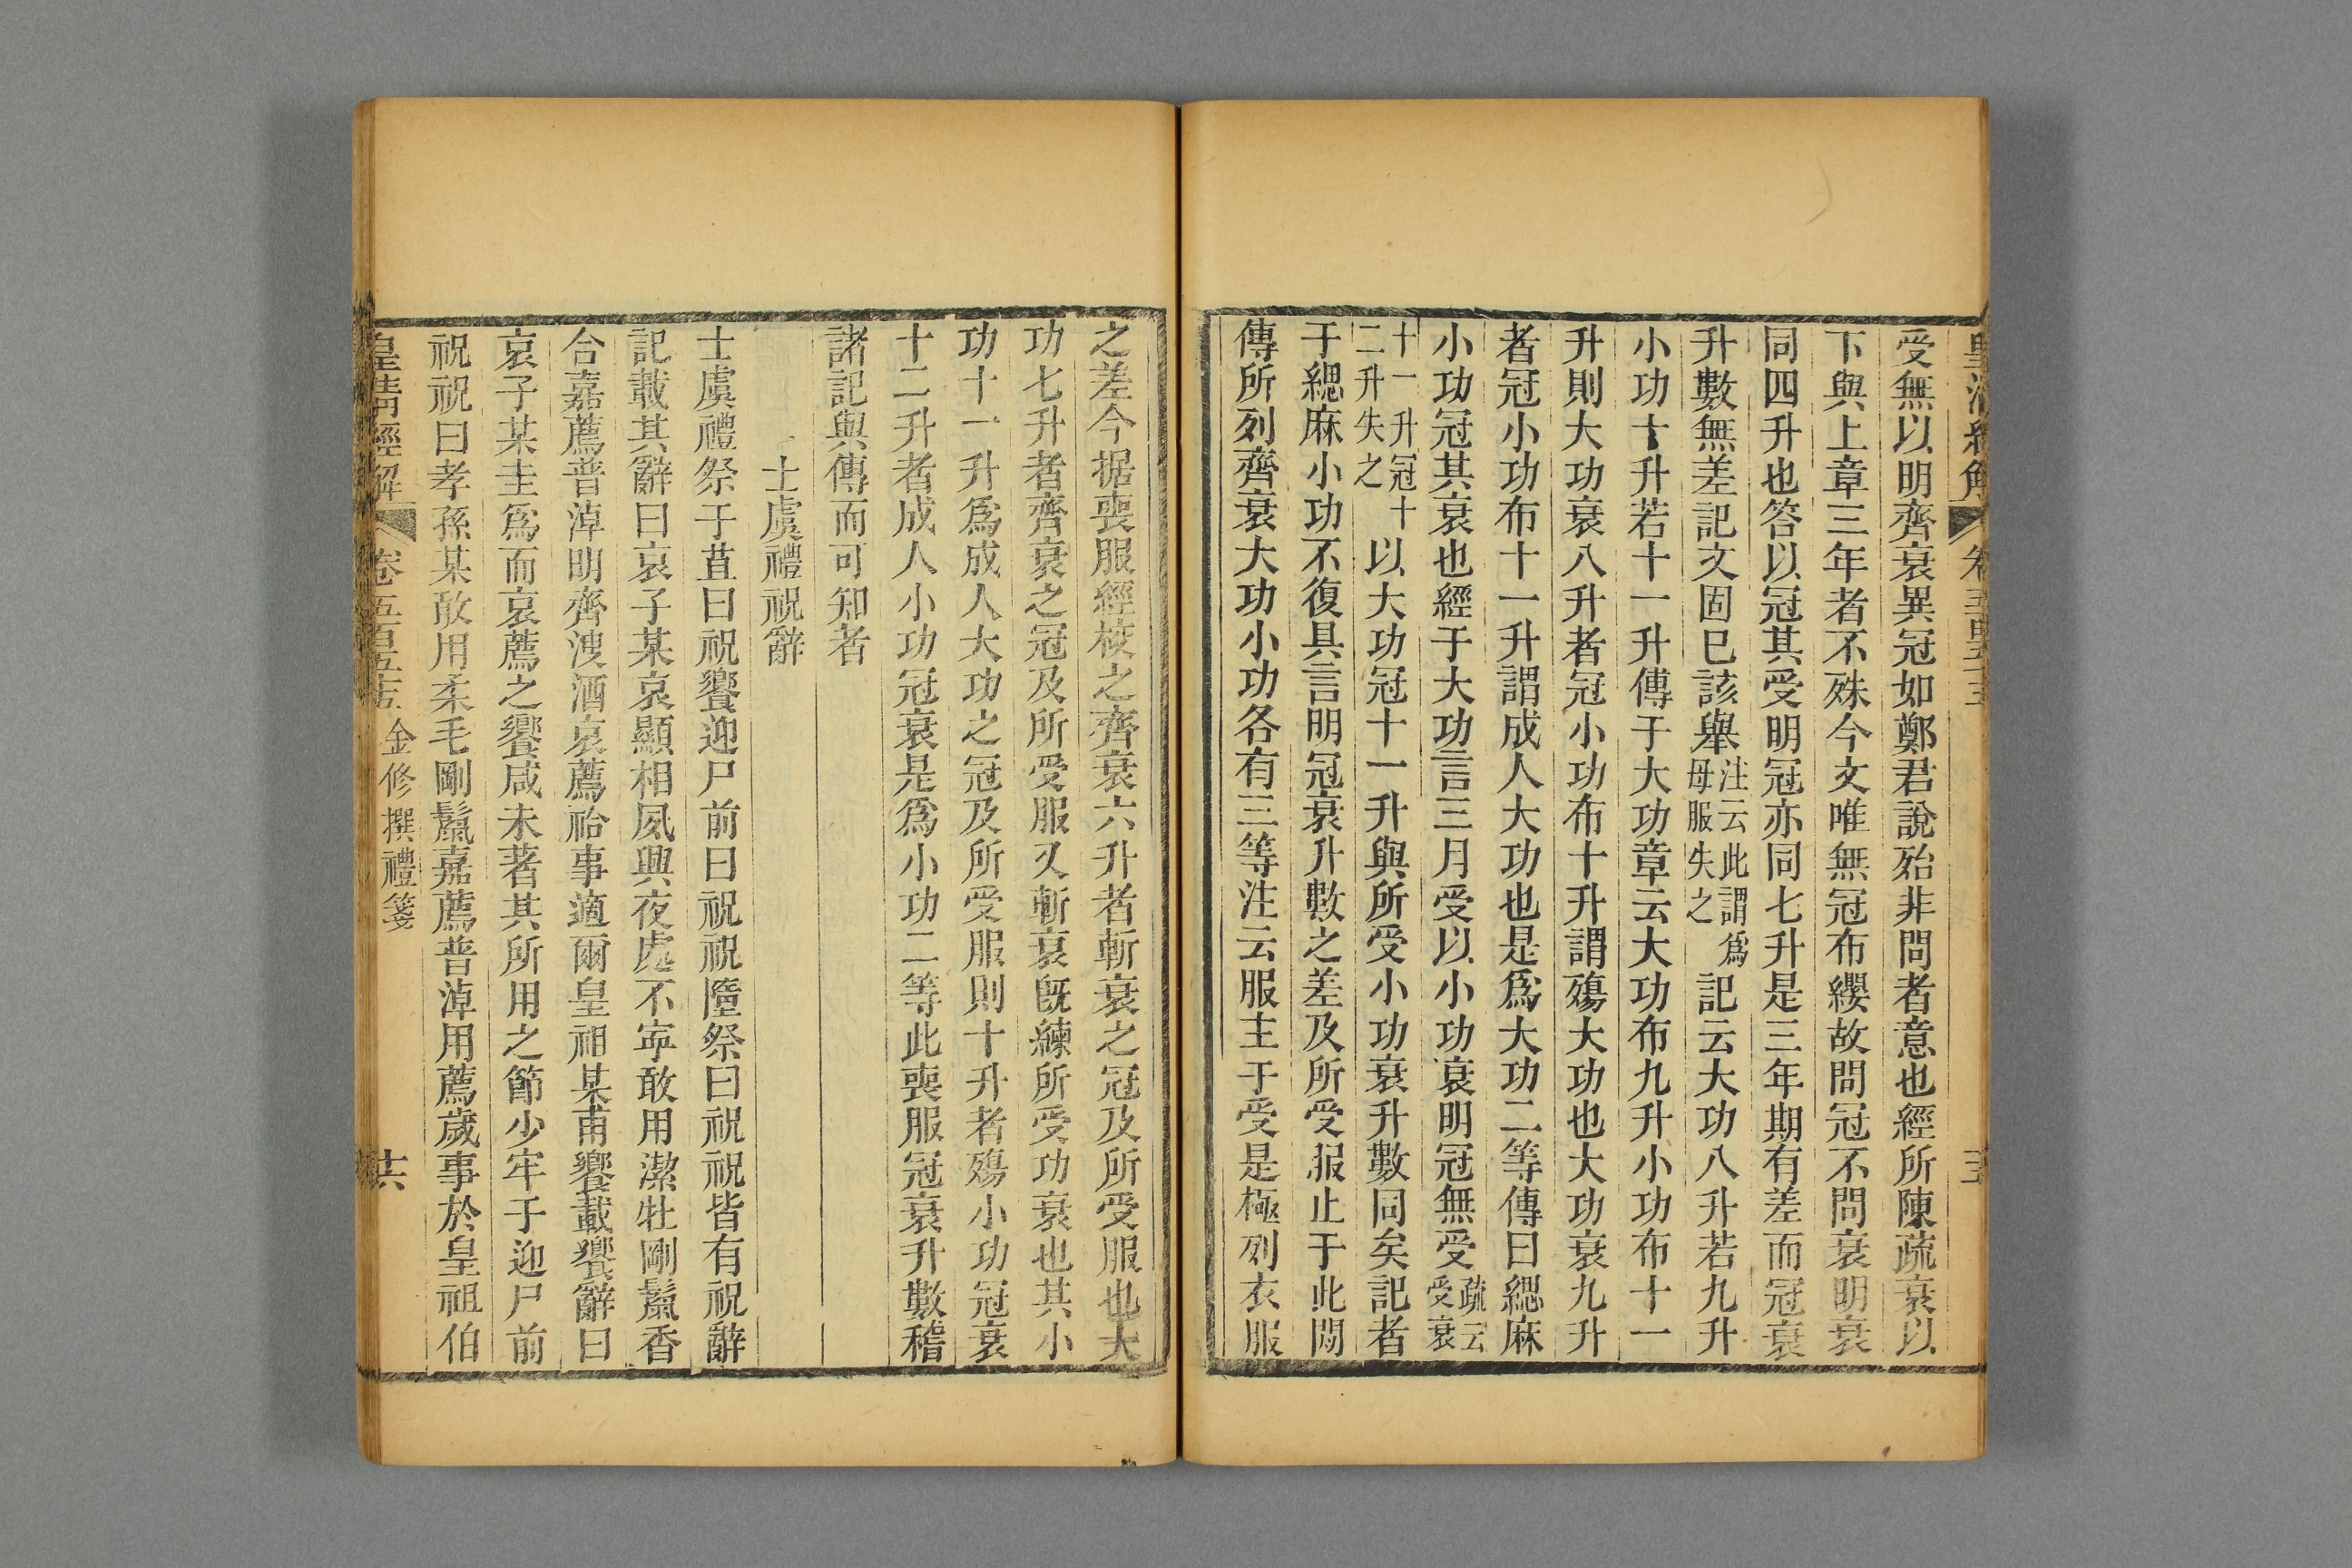 受無以明齊衰異冠如鄭君說殆非問者意也經所陳疏衰以
下與上章三年者不殊今文唯無冠布纓故問冠不問衰明衰
同四升也答以冠其受明冠亦同七升是三年期有差而冠衰
升數無差記文固已該舉注云此謂爲母服失之記云大功八升若九升
小功十升若十一升傳于大功章云大功布九升小功布十一
升則大功衰八升者冠小功布十升謂殤大功也大功衰九升
者冠小功布十一升謂成人大功也是爲大功二等傳曰緦麻
小功冠其衰也經于大功言三月受以小功衰明冠無受疏云受衰
十一升冠十二升失之以大功冠十一升與所受小功衰升數同矣記者
于緦麻小功不復具言明冠衰升數之差及所受服止于此閒
傳所列齊衰大功小功各有三等注云服主于受是極列衣服
之差今据喪服經校之齊衰六升者斬衰之冠及所受服也大
功七升者齊衰之冠及所受服又斬衰旣練所受功衰也其小
功十一升爲成人大功之冠及所受服則十升者殤小功冠衰
十二升者成人小功冠衰是爲小功二等此喪服冠衰升數稽
諸記與傳而可知者
士虞禮祝辭
士虞禮祭于苴曰祝饗迎尸前曰祝祝隋祭曰祝祝皆有祝辭
記載其辭曰哀子某哀顯相夙興夜處不寧敢用潔牡剛鬣香
合嘉薦普淖明齊溲酒哀薦祫事適爾皇祖某甫饗載饗辭曰
哀子某圭爲而哀薦之饗咸未著其所用之節少牢于迎尸前
祝祝曰孝孫某敢用柔毛剛鬣嘉薦普淖用薦歲事於皇祖伯
皇清經解
卷五百五十五
金修撰禮箋
十六